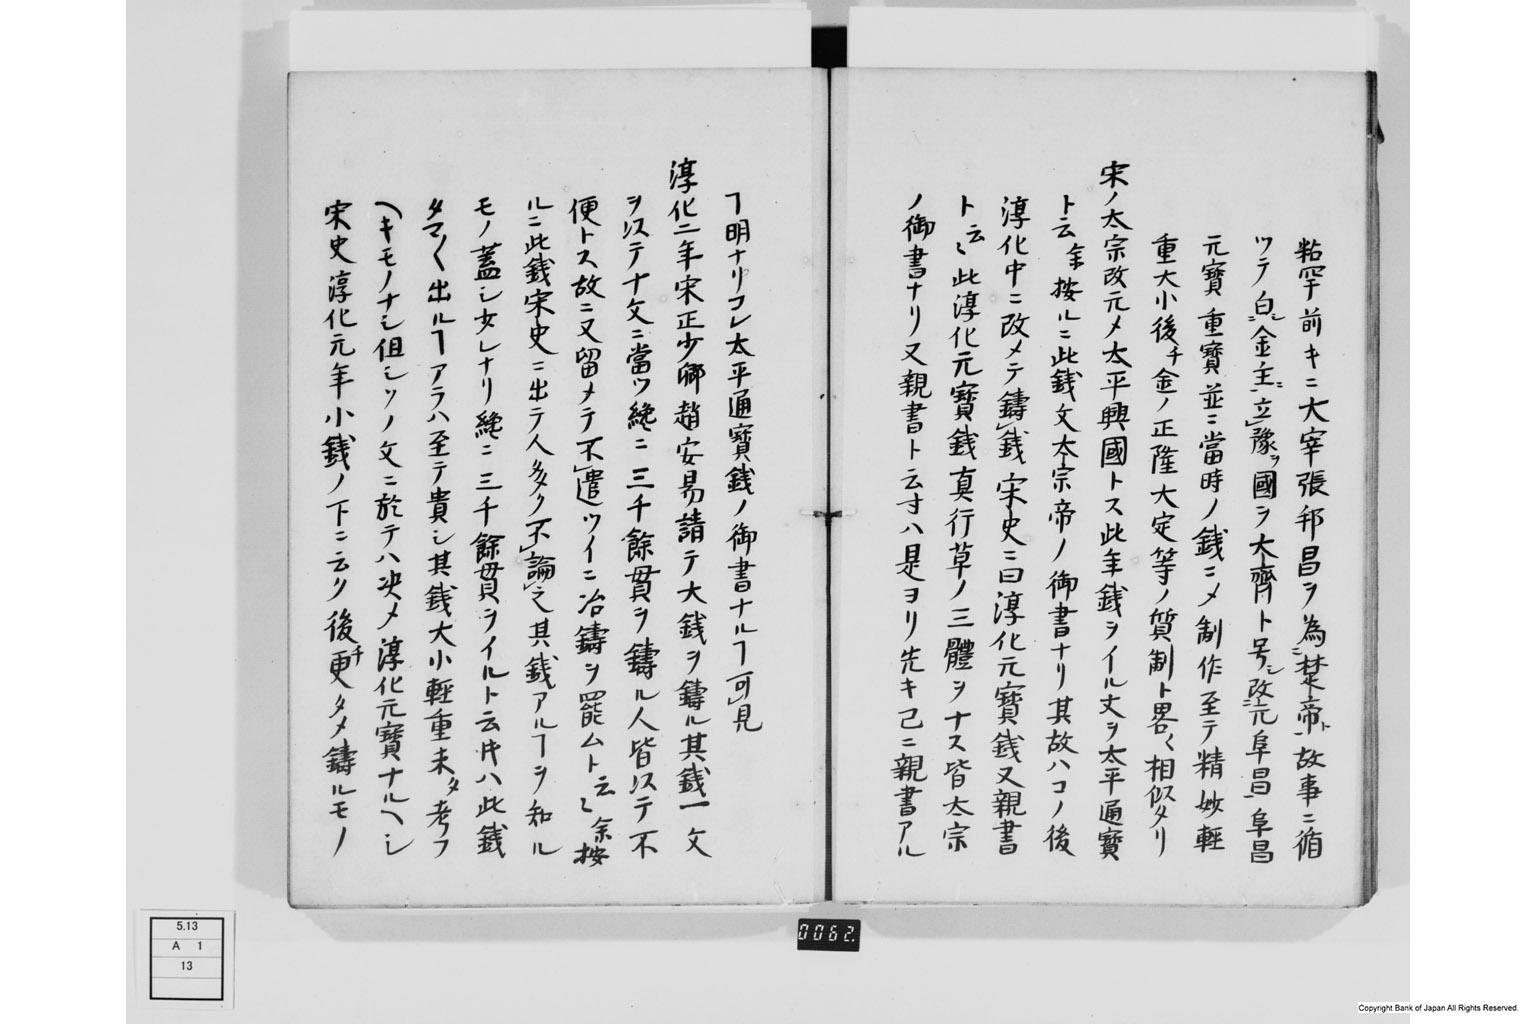 粘罕前キニ大宰張邦昌ヲ為ニ楚帝ト故事ニ循
ツテ白ニシ金主ニ立豫ヲ國ヲ大齊ト号シ改元阜昌阜昌
元寳重寳並ニ當時ノ銭ニメ制作至テ精妙輕
重大小後チ金ノ正隆大定等ノ質制ト畧〻相似タリ
宋ノ太宗改元メ太平興國トス此年銭ヲイル文ヲ太平通寳
ト云余按ルニ此銭文太宗帝ノ御書ナリ其故ハコノ後
淳化中ニ改メテ鑄銭宋史ニ曰淳化元寳銭又親書
ト云〻此淳化元寳銭真行草ノ三體ヲナス皆太宗
ノ御書ナリ又親書ト云寸ハ是ヨリ先キ己ニ親書アル
ヿ明ナリコレ太平通寳銭ノ御書ナルヿ可見
淳化二年宋正少卿趙安易請テ大銭ヲ鑄ル其銭一文
ヲ以テ十文ニ當ツ纔ニ三千餘貫ヲ鑄ル人皆以テ不
便トス故ニ又留メテ不遣ツイニ冶鑄ヲ罷ムト云〻余按
ルニ此銭宋史ニ出テ人多ク不論之其銭アルヿヲ知ル
モノ蓋シ少レナリ纔ニ三千餘貫ヲイルト云片ハ此銭
タマ〱出ルヿアラハ至テ貴シ其銭大小輕重未タ考フ
ヘキモノナシ但シソノ文ニ於テハ决メ淳化元寳ナルヘシ
宋史淳化元年小銭ノ下ニ云ク後チ更タメ鑄ルモノ
0062.
5.13
A 1
13
Copyright Bank of Japan All Rights Reserved.